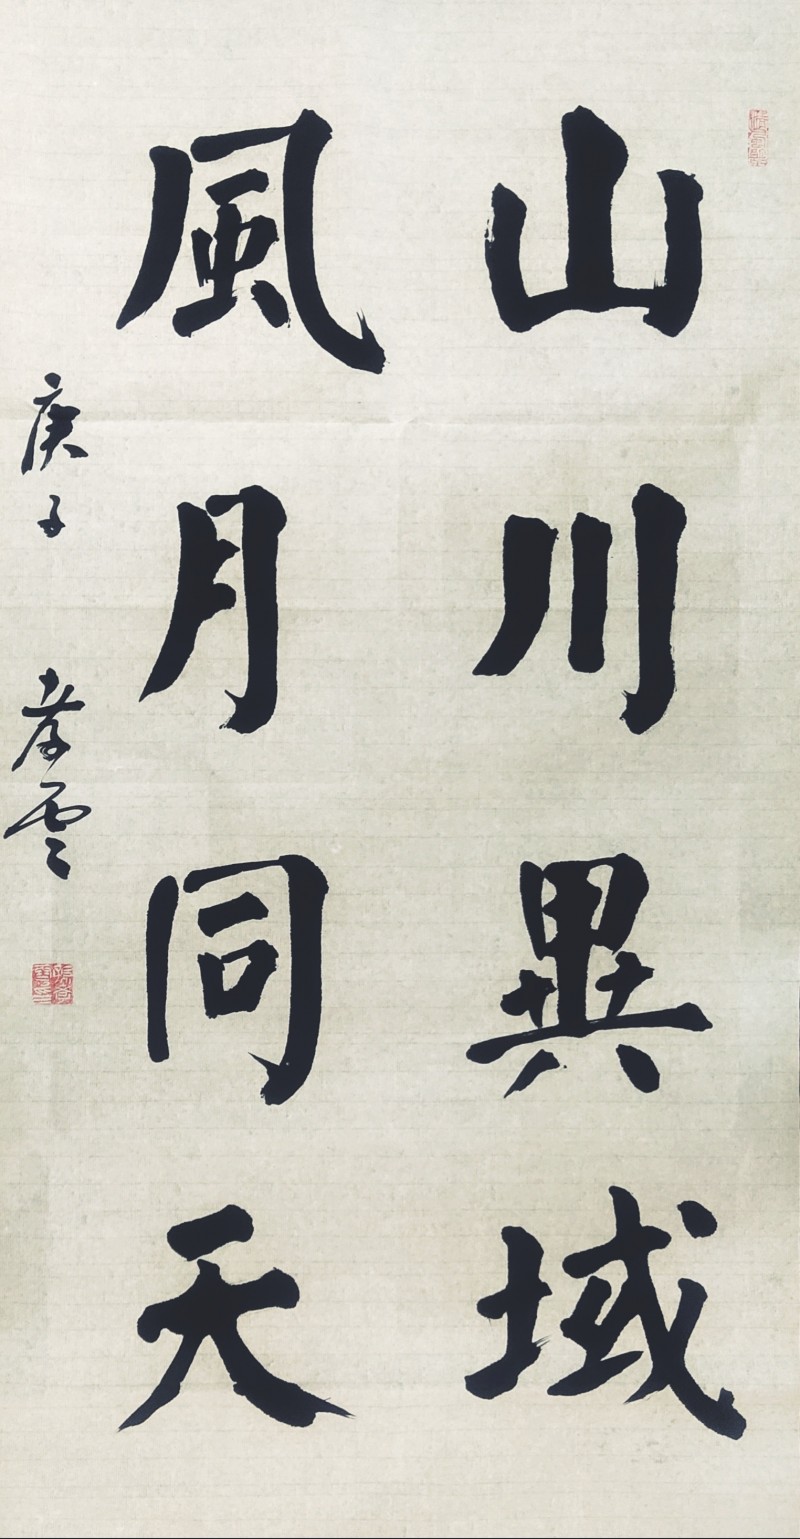 山川異域
風月同天
庚子 孝雲